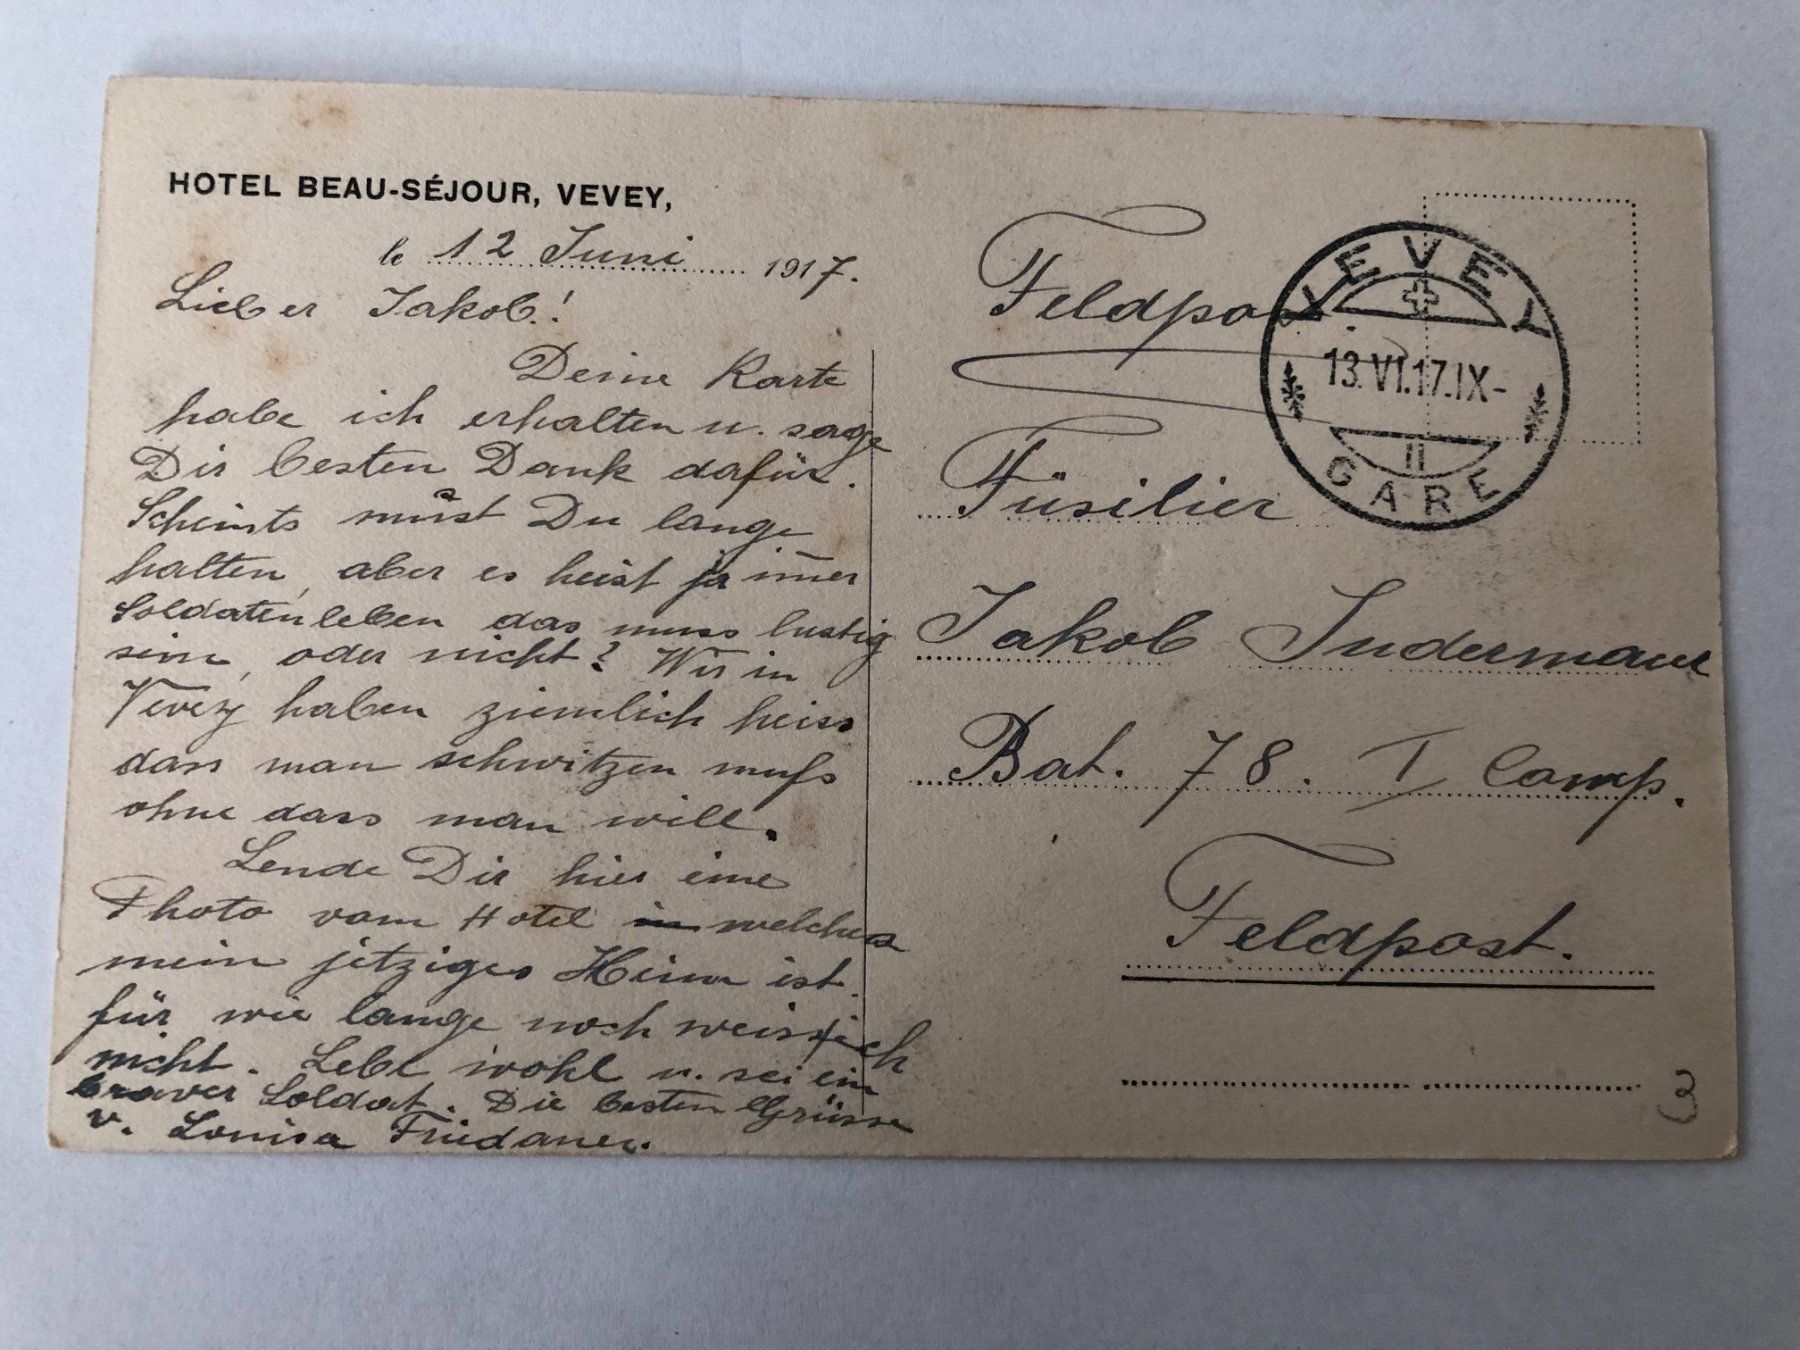 HOTEL BEAU-SÉJOUR, VEVEY,
le 12 Juni 1917.
Lieber Jakob!
Deine Karte
habe ich erhalten u. sage
Dir besten Dank dafür.
Scheints must Du lange
halten, aber es heist ja im̅er
Soldatenleben das muss lustig
sein, oder nicht? Wir in
Vevey haben ziemlich heiss
dass man schwitzen muss
ohne dass man will.
Sende Dir hier eine
Photo vom Hotel in welches
mein jetziges Heim ist.
für wie lange noch weiss ich
nicht. Lebe wohl u. sei ein
braver Soldat. Die besten Grüsse
v. Louisa
Feldpost.
VEVEY
13.VI.17.IX-
II
GARE
Füsilier
Jakob Sudermann
Bat. 78. I Comp.
Feldpost.
3